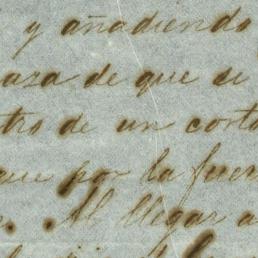 y añadiendo
aza de que si
tro de un corto
que por la fuer
. Al llegar a